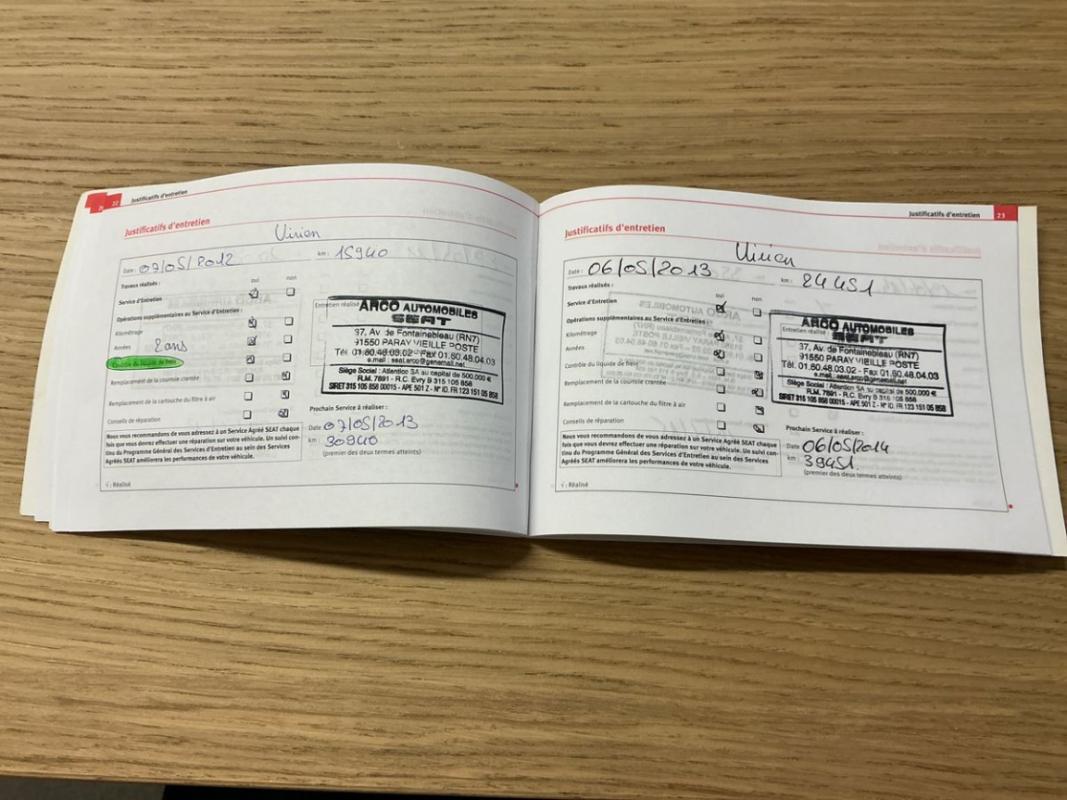 22 Justificatifs d'entretien
Justificatifs d'entretien
Vivien
Date : 07/05/2012 km : 15940
Travaux réalisés : oui non
Service d'Entretien
Opérations supplémentaires au Service d'Entretien :
Kilométrage
Années 2 ans
Contrôle du liquide de frein
Remplacement de la courroie crantée
Remplacement de la cartouche du filtre à air
Conseils de réparation
Nous vous recommandons de vous adressez à un Service Agréé SEAT chaque
fois que vous devrez effectuer une réparation sur votre véhicule. Un suivi con-
tinu du Programme Général des Services d'Entretien au sein des Services
Agréés SEAT améliorera les performances de votre véhicule.
√ : Réalisé
Entretien réalisé
ARCO AUTOMOBILES
SEAT
37, Av. de Fontainebleau (RN7)
91550 PARAY VIEILLE POSTE
Tél. 01.60.48.03.02 - Fax 01.60.48.04.03
e.mail : seat.arco@genamail.net
Siège Social : Atlentico SA au capital de 500.000 €
RLM. 7891 - R.C. Evry B 315 105 858
SIRET 315 105 858 00015 - APE 501 Z - N° ID. FR 123 151 05 858
Prochain Service à réaliser :
Date 07/05/2013
km 30940
(premier des deux termes atteints)
Justificatifs d'entretien 23
Justificatifs d'entretien
Vivien
Date : 06/05/2013 km : 24451
Travaux réalisés : oui non
Service d'Entretien
Opérations supplémentaires au Service d'Entretien :
Kilométrage
Années
Contrôle du liquide de frein
Remplacement de la courroie crantée
Remplacement de la cartouche du filtre à air
Conseils de réparation
Nous vous recommandons de vous adressez à un Service Agréé SEAT chaque
fois que vous devrez effectuer une réparation sur votre véhicule. Un suivi con-
tinu du Programme Général des Services d'Entretien au sein des Services
Agréés SEAT améliorera les performances de votre véhicule.
√ : Réalisé
Entretien réalisé
ARCO AUTOMOBILES
SEAT
37, Av. de Fontainebleau (RN7)
91550 PARAY VIEILLE POSTE
Tél. 01.60.48.03.02 - Fax 01.60.48.04.03
e.mail : seat.arco@genamail.net
Siège Social : Atlentico SA au capital de 500.000 €
RLM. 7891 - R.C. Evry B 315 105 858
SIRET 315 105 858 00015 - APE 501 Z - N° ID. FR 123 151 05 858
Prochain Service à réaliser :
Date 06/05/2014
km : 39451.
(premier des deux termes atteints)